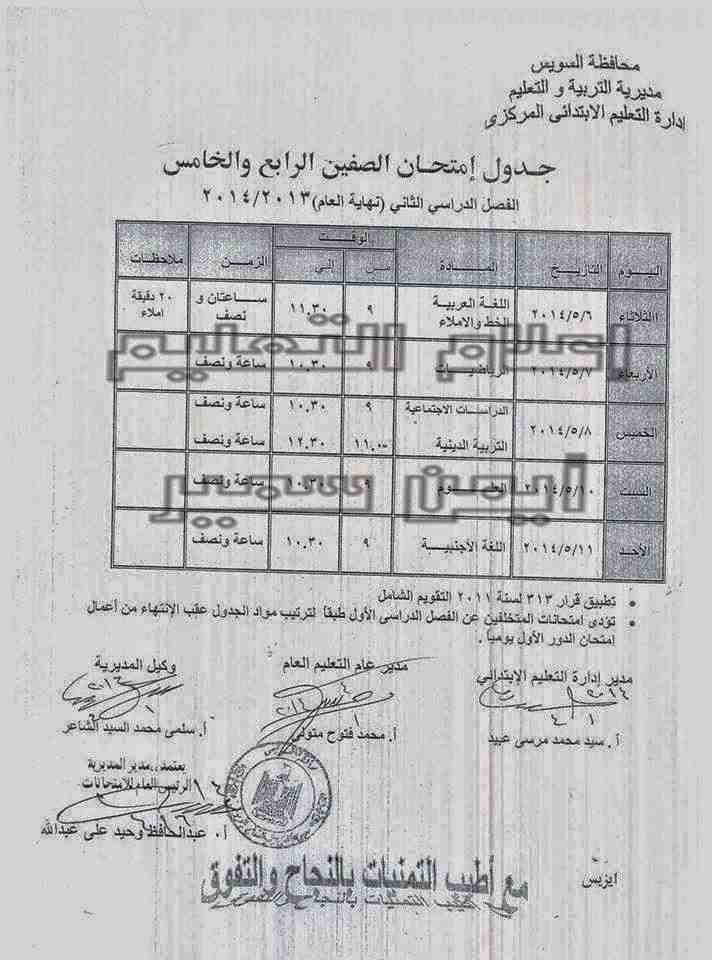 محافظة السويس
مديرية التربية و التعليم
إدارة التعليم الابتدائى المركزى
جدول إمتحان الصفين الرابع والخامس
الفصل الدراسي الثاني (نهاية العام) ٢٠١٤/٢٠١٣
اليوم التاريخ المادة الوقت الزمن ملاحظات
من إلي
الثلاثاء ٢٠١٤/٥/٦ اللغة العربية الخط والاملاء ٩ ١١,٣٠ ساعتان و نصف ٢٠ دقيقة املاء
اعلام التعليم
الأربعاء ٢٠١٤/٥/٧ الرياضيات ٩ ١٠,٣٠ ساعة ونصف
الخميس ٢٠١٤/٥/٨ الدراسات الاجتماعية ٩ ١٠,٣٠ ساعة ونصف
التربية الدينية ١١,٠٠ ١٢,٣٠ ساعة ونصف
السبت ٢٠١٤/٥/١٠ العلوم ٩ ١٠,٣٠ ساعة ونصف
أيمن سمير
الأحد ٢٠١٤/٥/١١ اللغة الأجنبية ٩ ١٠,٣٠ ساعة ونصف
• تطبيق قرار ٣١٣ لسنة ٢٠١١ التقويم الشامل
• تؤدى امتحانات المتخلفين عن الفصل الدراسى الأول طبقاً لترتيب مواد الجدول عقب الإنتهاء من أعمال
امتحان الدور الأول يومياً .
مدير إدارة التعليم الإبتدائي مدير عام التعليم العام وكيل المديرية
أ. سيد محمد مرسى عبيد أ. محمد فتوح متولى أ. سلمى محمد السيد الشاعر
يعتمد، مدير المديرية
الرئيس العام للامتحانات
أ. عبدالحافظ وحيد على عبدالله
ايزيس
مع أطيب التمنيات بالنجاح والتفوق